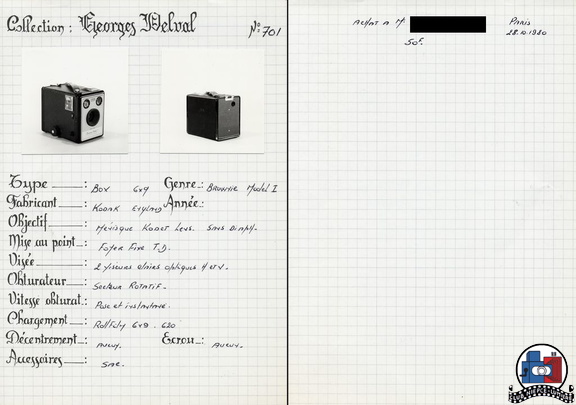 Collection : Georges Delval Nº 701
Type : Box 6x9 Genre : Brownie Model I
Fabricant : Kodak England Année :
Objectif : Ménisque Kodet Lens. Sans Diaph.
Mise au point : Foyer Fixe T.D.
Visée : 2 viseurs clairs optiques H et V.
Obturateur : Secteur Rotatif.
Vitesse obturat. : Pose et instantané.
Chargement : Rollfilm 6x9. 620
Décentrement : Aucun. Ecrou : Aucun.
Accessoires : Sac.
Achat a M. Paris
50F. 28.10.1980